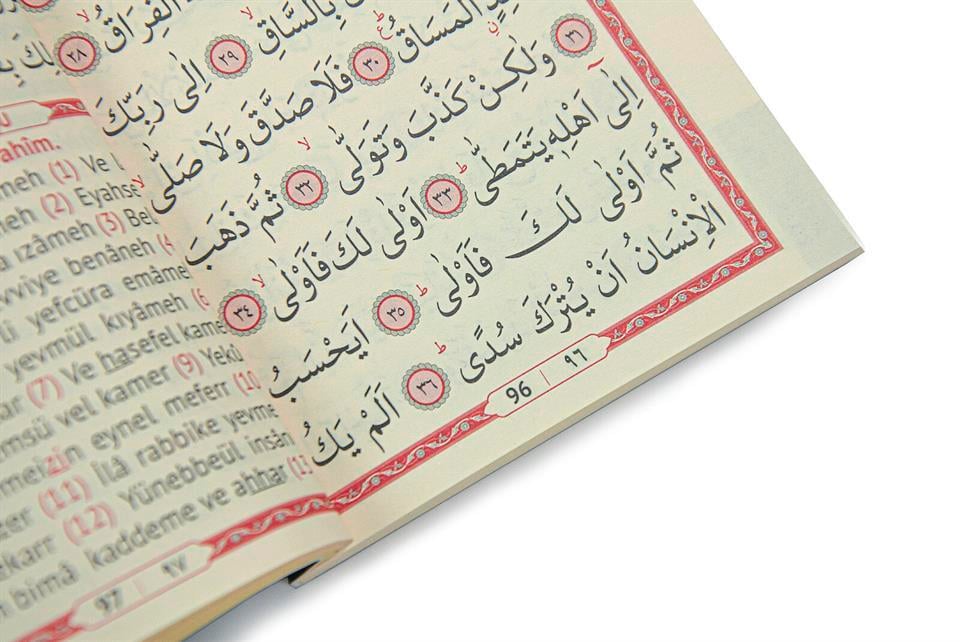 الْفِرَاقُ ٢٨
بِالسَّاقِ ٢٩ اِلٰى رَبِّكَ
الْمَسَاقُ ٣٠ فَلَا صَدَّقَ وَلَا صَلّٰى
٣١ وَلٰكِنْ كَذَّبَ وَتَوَلّٰى ٣٢ ثُمَّ ذَهَبَ
اِلٰٓى اَهْلِهٖ يَتَمَطّٰى ٣٣ اَوْلٰى لَكَ فَاَوْلٰى ٣٤
ثُمَّ اَوْلٰى لَكَ فَاَوْلٰى ٣٥ اَيَحْسَبُ
الْاِنْسَانُ اَنْ يُتْرَكَ سُدًى ٣٦ اَلَمْ يَكُ
96 | ٩٦
ahîm.
meh (1) Ve l
meh (2) Eyahse
a ızâmeh (3) Bel
vviye benâneh (4
li yefcüra emâme
yevmül kıyâmeh (6
ar (7) Ve hasefel kame
msü vel kamer (9) Yekû
meizin eynel meferr (10
zer (11) İlâ rabbike yevme
karr (12) Yünebbeül insân
bimâ kaddeme ve ahhar (13
97 | ٩٧